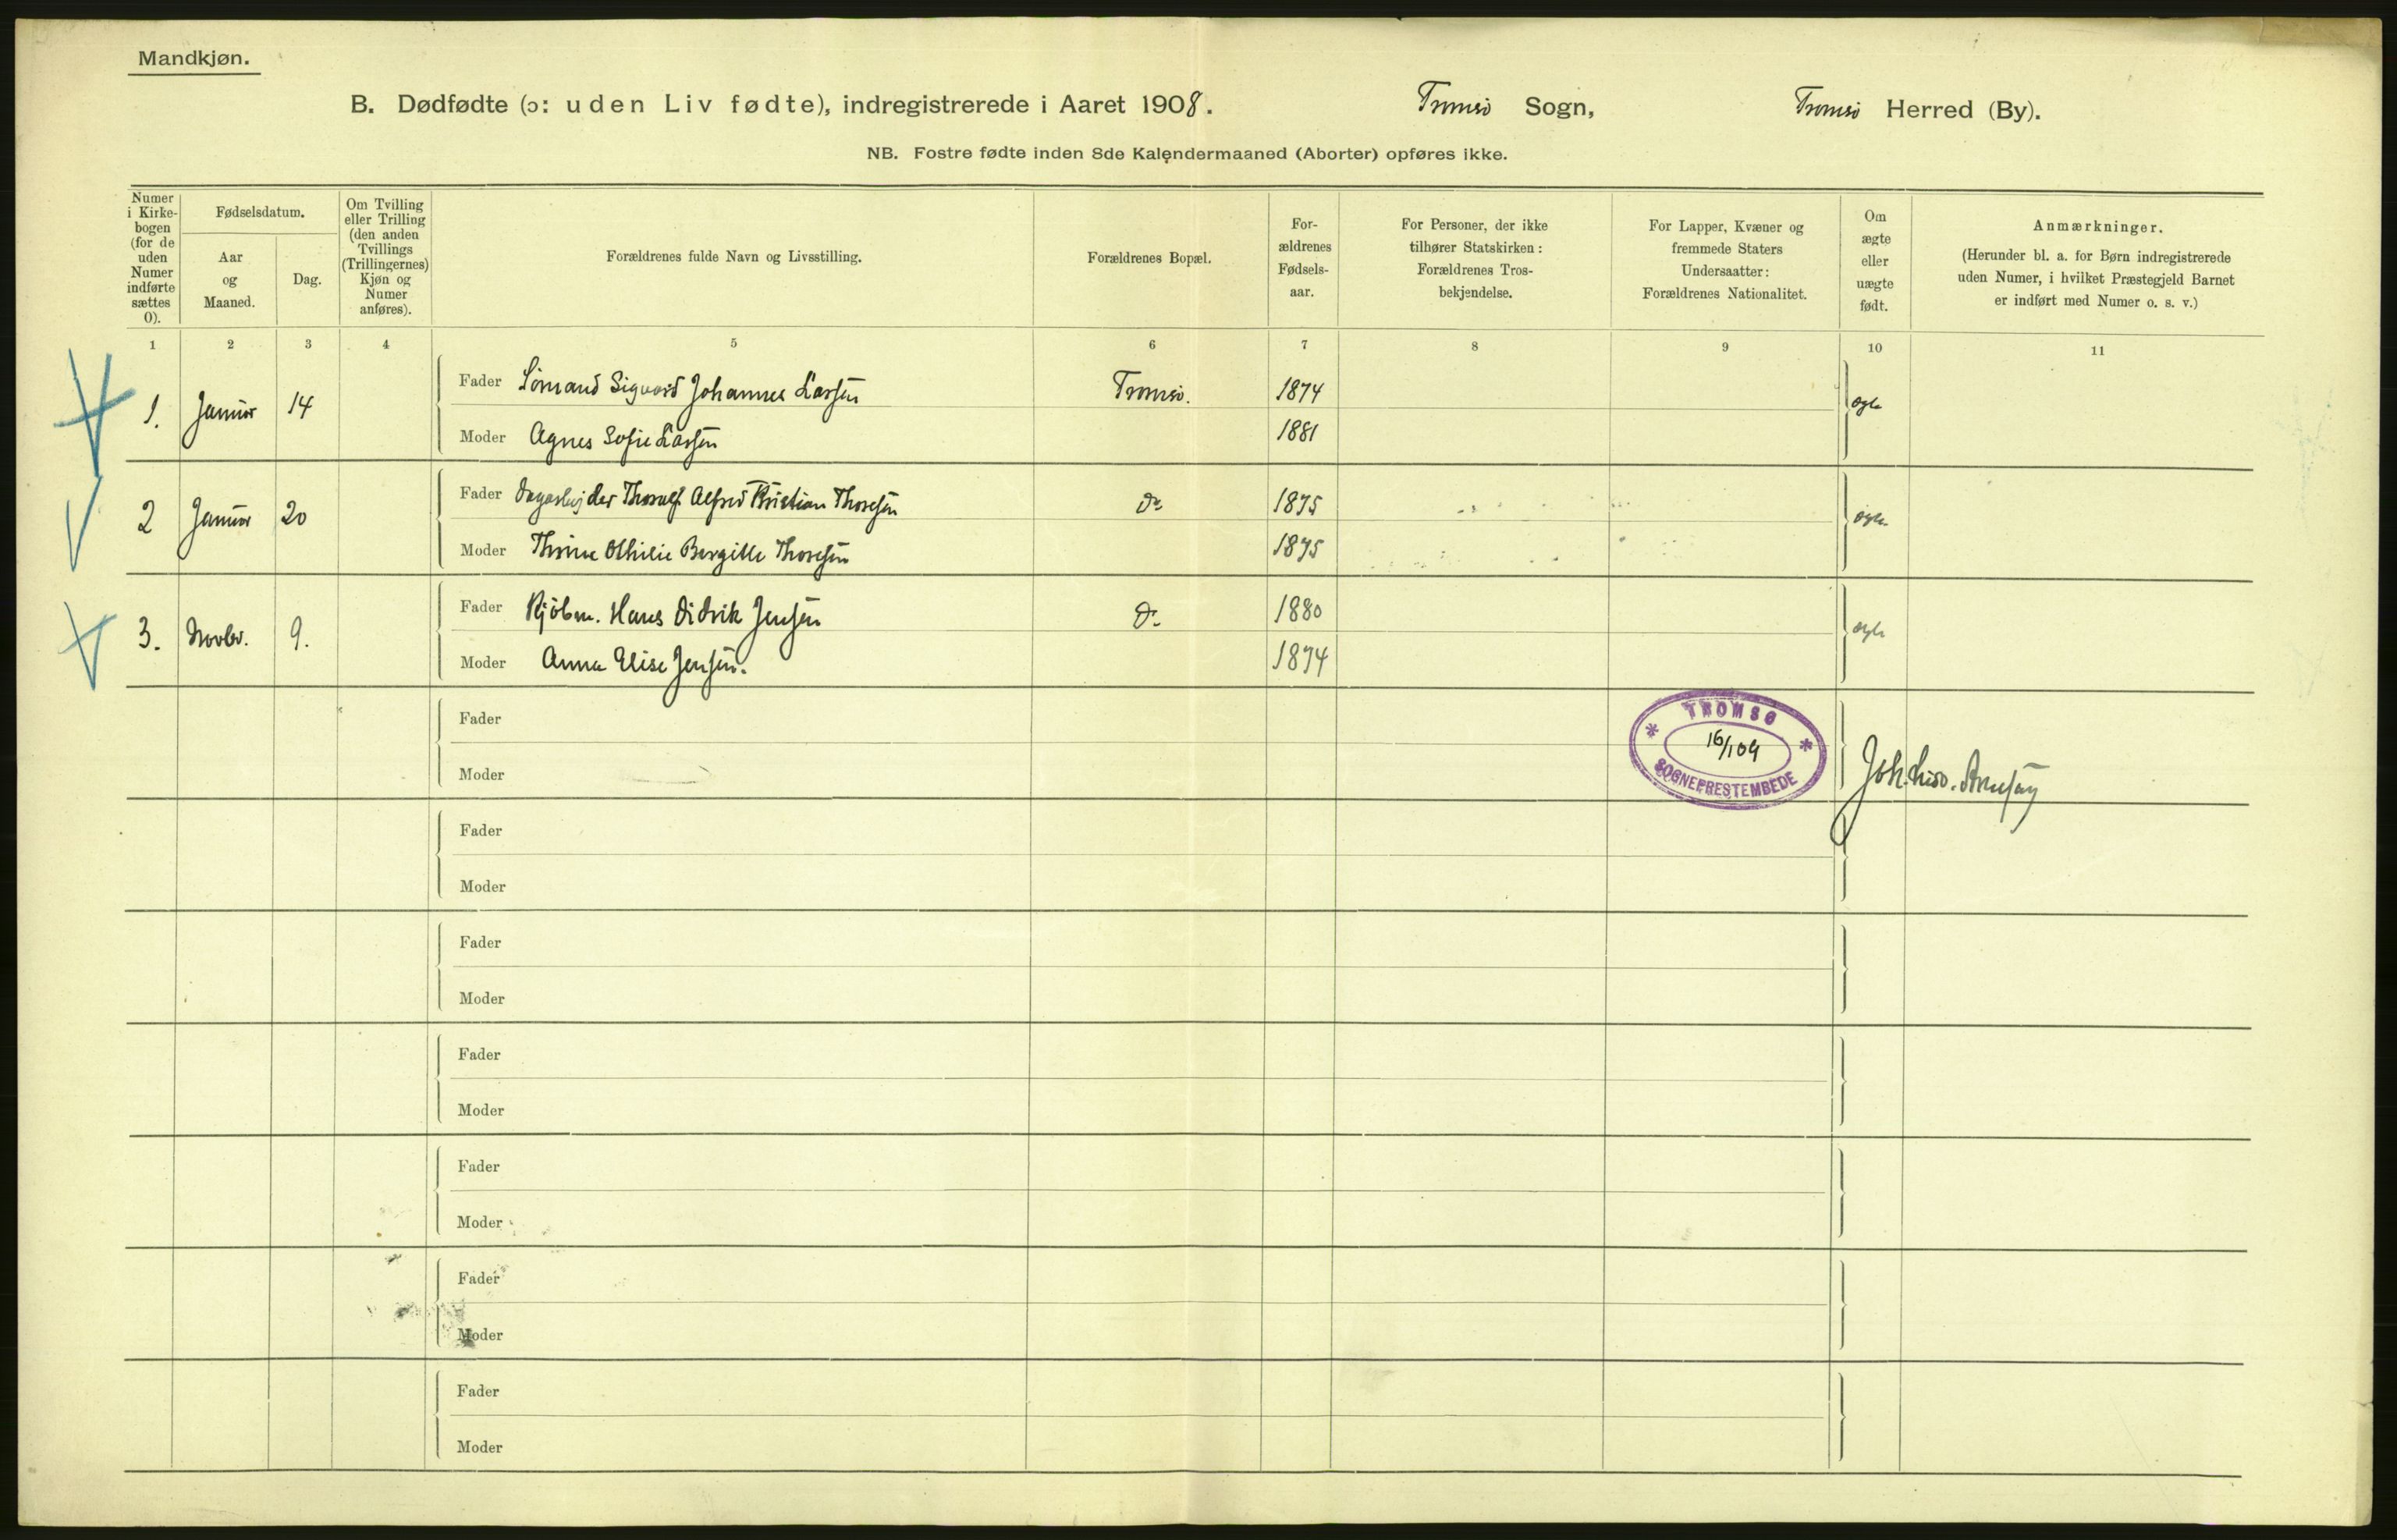 Mandkjøn.
B. Dødfødte (ɔ: uden Liv fødte), indregistrerede i Aaret 1908. Tromsø Sogn, Tromsø Herred (By).
NB. Fostre fødte inden 8de Kalendermaaned (Aborter) opføres ikke.
Numer
i Kirke-
bogen
(for de
uden
Numer
indførte
sættes
0).
Fødselsdatum.
Aar
og
Maaned.
Dag.
Om Tvilling
eller Trilling
(den anden
Tvillings
(Trillingernes)
Kjøn og
Numer
anføres).
Forældrenes fulde Navn og Livsstilling.
Forældrenes Bopæl.
For-
ældrenes
Fødsels-
aar.
For Personer, der ikke
tilhører Statskirken:
Forældrenes Tros-
bekjendelse.
For Lapper, Kvæner og
fremmede Staters
Undersaatter:
Forældrenes Nationalitet.
Om
ægte
eller
uægte
født.
Anmærkninger.
(Herunder bl. a. for Børn indregistrerede
uden Numer, i hvilket Præstegjeld Barnet
er indført med Numer o. s. v.)
1 2 3 4 5 6 7 8 9 10 11
1. Januar 14 Fader Sömand Sigvard Johannes Larssen Tromsö. 1874 ægte
Moder Agnes Sofie Larssen 1881
2 Januar 20 Fader Dagarbejder Thoralf Alfred Kristian Thoresen Do 1875 ægte
Moder Othilie Bergitte Thoresen 1875
3. Novbr. 9. Fader Kjöbm. Hans Didrik Jenssen Do 1880 ægte
Moder Anna Elise Jenssen. 1874
Fader
Moder
TROMSØ
16/1 09
SOGNEPRESTEMBEDE
Fader
Moder
Fader
Moder
Fader
Moder
Fader
Moder
Fader
Moder
Fader
Moder